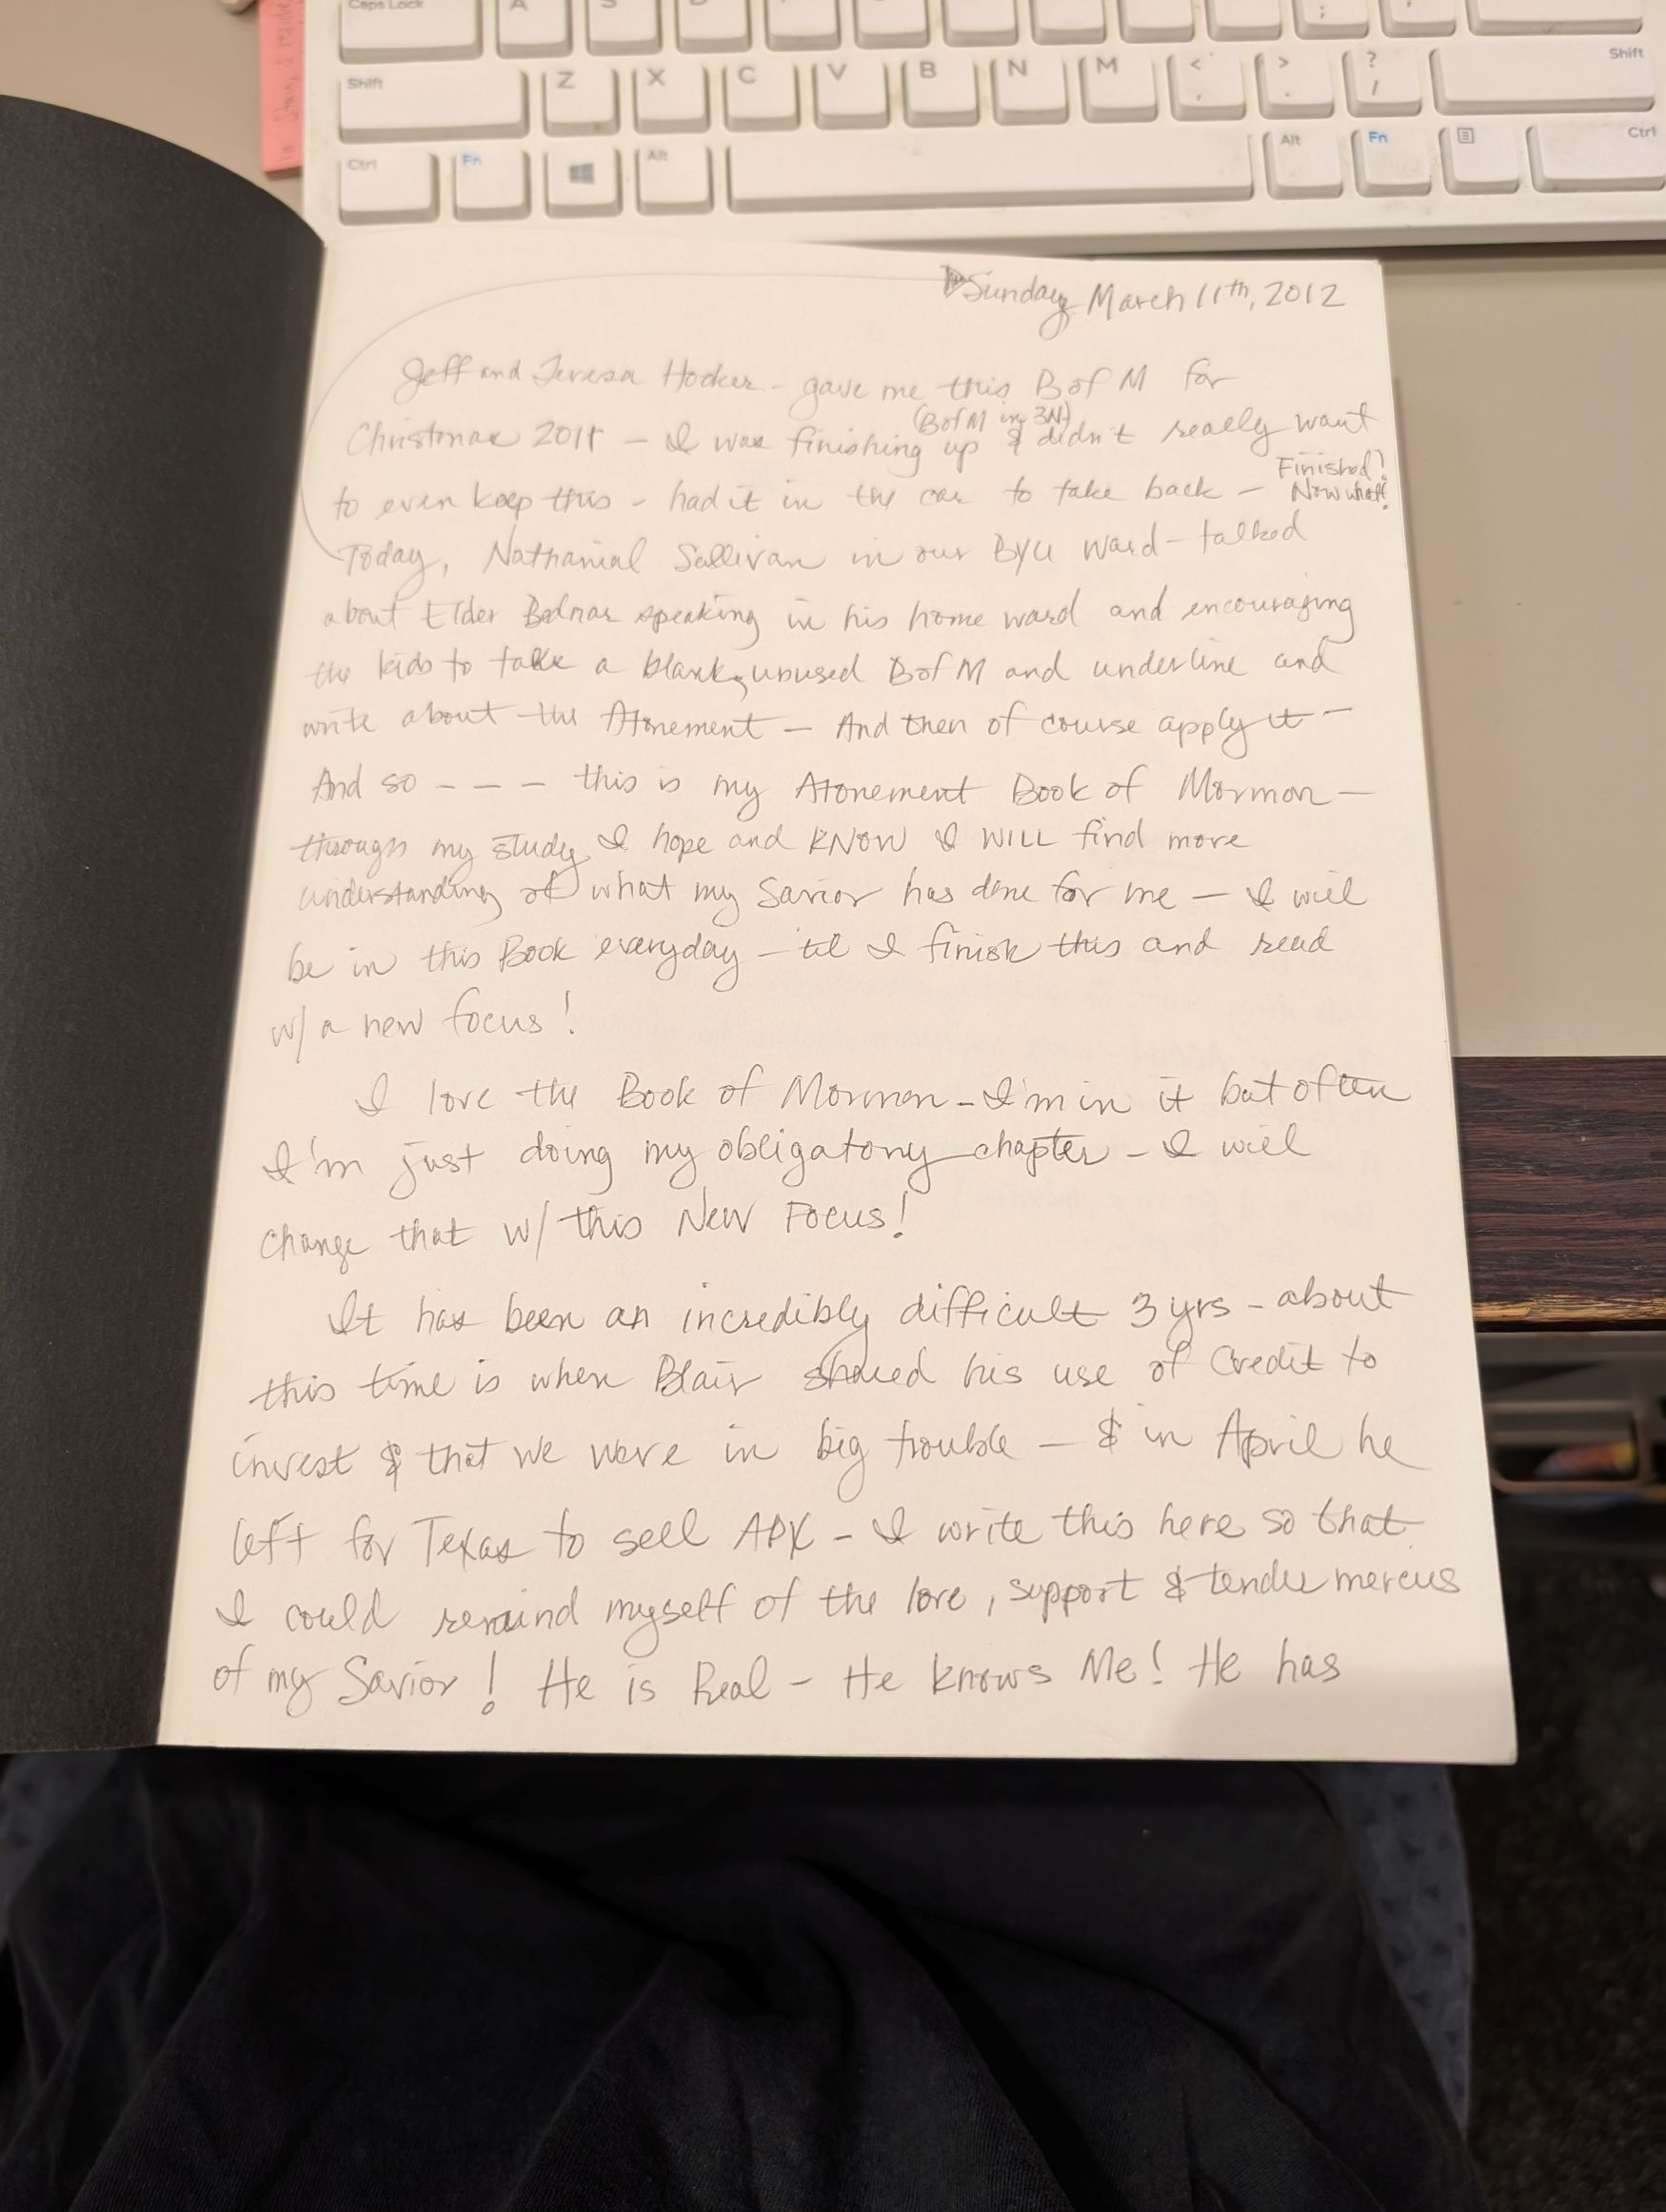 Caps Lock A S
Shift Z X C V B N M < , > . ? / Shift
Ctrl Fn Alt Alt Fn Ctrl
Sunday March 11th, 2012
Jeff and Teresa Hocker - gave me this B of M for
(B of M in 3N)
Christmas 2011 — I was finishing up & didn't really want
to even keep this - had it in the car to take back — Finished! Now what?
Today, Nathanial Sullivan in our BYU Ward - talked
about Elder Bednar speaking in his home ward and encouraging
the kids to take a blank, unused B of M and underline and
write about the Atonement — And then of course apply it —
And so - - - this is my Atonement Book of Mormon —
through my study I hope and KNOW I WILL find more
understanding of what my Savior has done for me — I will
be in this Book everyday — til I finish this and read
w/ a new focus!
I love the Book of Mormon - I'm in it but often
I'm just doing my obligatory chapter - I will
change that w/ this New Focus!
It has been an incredibly difficult 3 yrs - about
this time is when Blair shared his use of Credit to
invest & that we were in big trouble — & in April he
left for Texas to sell APX - I write this here so that
I could remind myself of the love, support & tender mercies
of my Savior! He is Real - He knows Me! He has